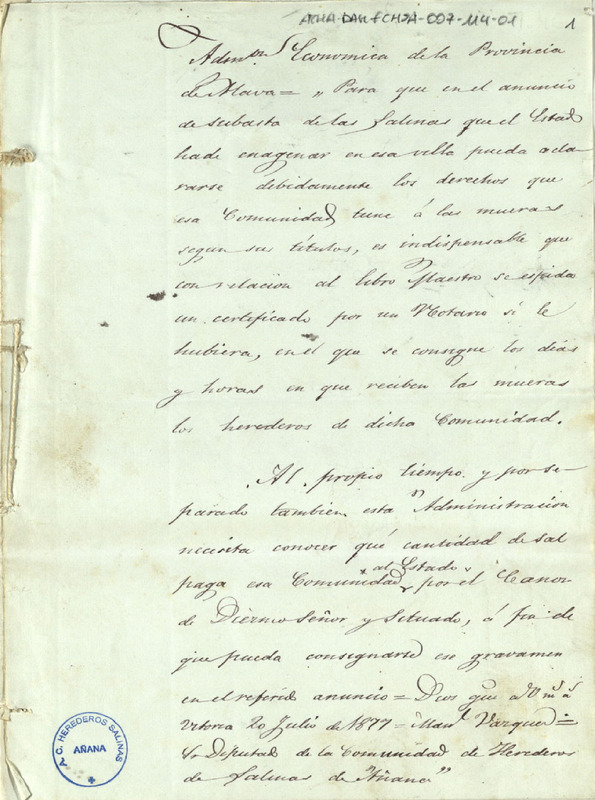 AÑHA-DAH-FCHSA-007-114-01
1
Admon Economica de la Provincia
de Alava = „ Para que en el anuncio
de subasta de las Salinas que el Estado
ha de enagenar en esa villa pueda acla-
rarse debidamente los derechos que
esa Comunidad tiene á las mueras
segun sus titulos, es indispensable que
con relacion al libro Maestro se espida
un certificado por un Notario si le
hubiera, en el que se consigne los dias
y horas en que reciben las mueras
los herederos de dicha Comunidad.
Al propio tiempo y por se-
parado tambien esta Administración
necesita conocer qué cantidad de sal
al Estado
paga esa Comunidad por el Canon
de Diezmo Señor y Situado, á fin de
que pueda consignarse ese gravamen
en el referido anuncio = Dios gue a V m.s a.s
Vitoria 20 Julio de 1877 = Man.l Vazquez =
Sr Diputado de la Comunidad de Herederos
de Salinas de Añana"
A. C. HEREDEROS SALINAS
AÑANA